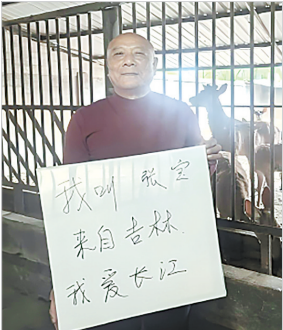 我叫 张宝
来自吉林.
我爱长江